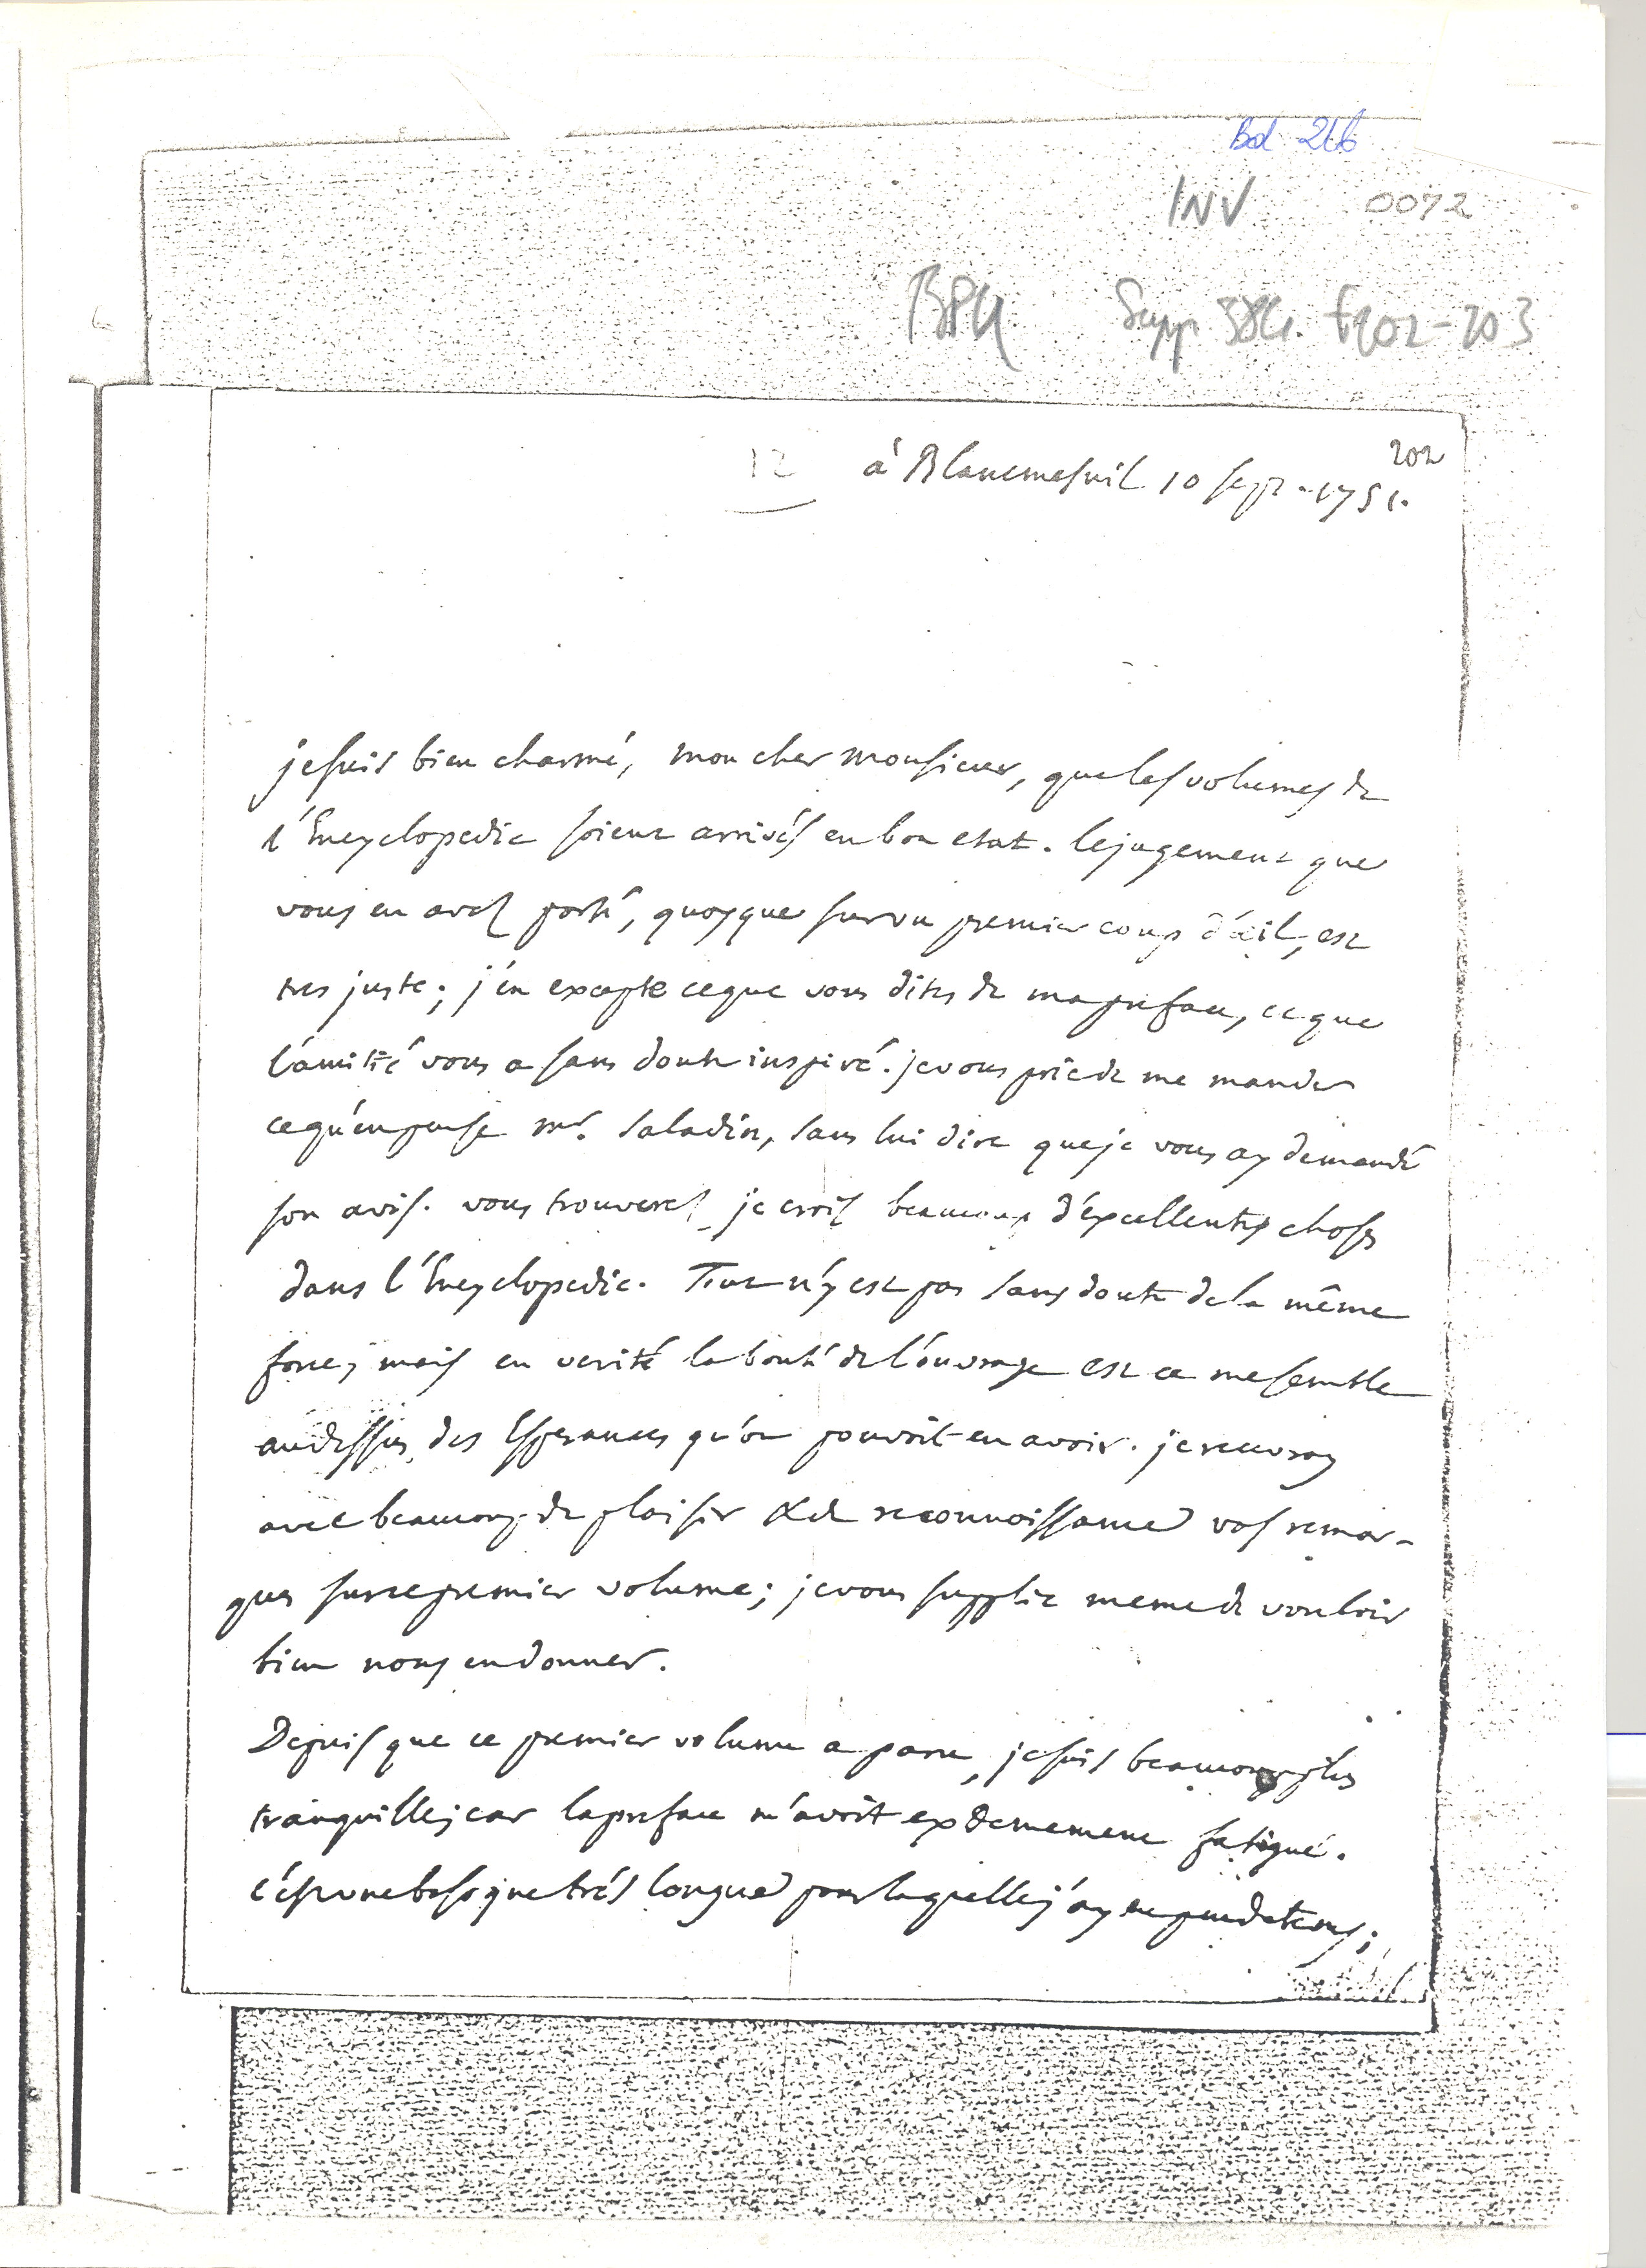 Bd 266
INV 0072
BPU Supp 384. f202-203
202
12 à Blancmesnil 10 sept. 1751.
je suis bien charmé, mon cher monsieur, que les volumes de
l'Encyclopedie soient arrivés en bon etat. le jugement que
vous en avez porté, quoyque sur un premier coup d'œil, est
tres juste; j'en excepte ce que vous dites de ma preface, ce que
l'amitié vous a sans doute inspiré. je vous prie de me mander
ce qu'en pense mr. Saladin, sans lui dire que je vous ay demandé
son avis. vous trouverez je crois beaucoup d'excellentes choses
dans l'Encyclopedie. Tout n'y est pas sans doute de la même
force; mais en verité la bonté de l'ouvrage est ce me semble
audessus des Esperances qu'on pouvoit en avoir. je recevray
avec beaucoup de plaisir & de reconnoissance vos remar-
ques sur ce premier volume; je vous supplie meme de vouloir
bien nous en donner.
Depuis que ce premier volume a paru, je suis beaucoup plus
tranquille; car la preface m'avoit extremement fatigué.
c'est une besogne très longue pour laquelle j'ay eu peu de tems;